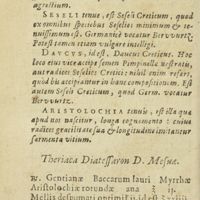 agrestium.
SESELI tenue, est Seseli Creticum, quod
ex omnibus speciebus Seselios minimum & te-
nuissimum est. Germanicè vocatur Bervvurtz.
Potest tamen etiam vulgare intelligi.
DAVCVS, id est, Daucus Creticus. Hoc
loco eius vice accipe semen Pimpinellæ nostratis,
aut radices Seselios Cretici: nihil enim refert,
quod bic accipiantur in hanc compositionem. Est
autem Creticum, quod Germ. vocatur
Bervvurtz.
ARISTOLOCHIA tenuis, est illa qua
apud nos nascitur, longa cognomento: cuius
radices gracilitate sua & longitudine imitantur
sarmenta vitium.
Theriaca Diatessaron D. Mesuæ.
℞. Gentianæ Baccarum lauri Myrrhæ
Aristolochiæ rotundæ ana ʒ ij.
Mellis despumati optimi lb.